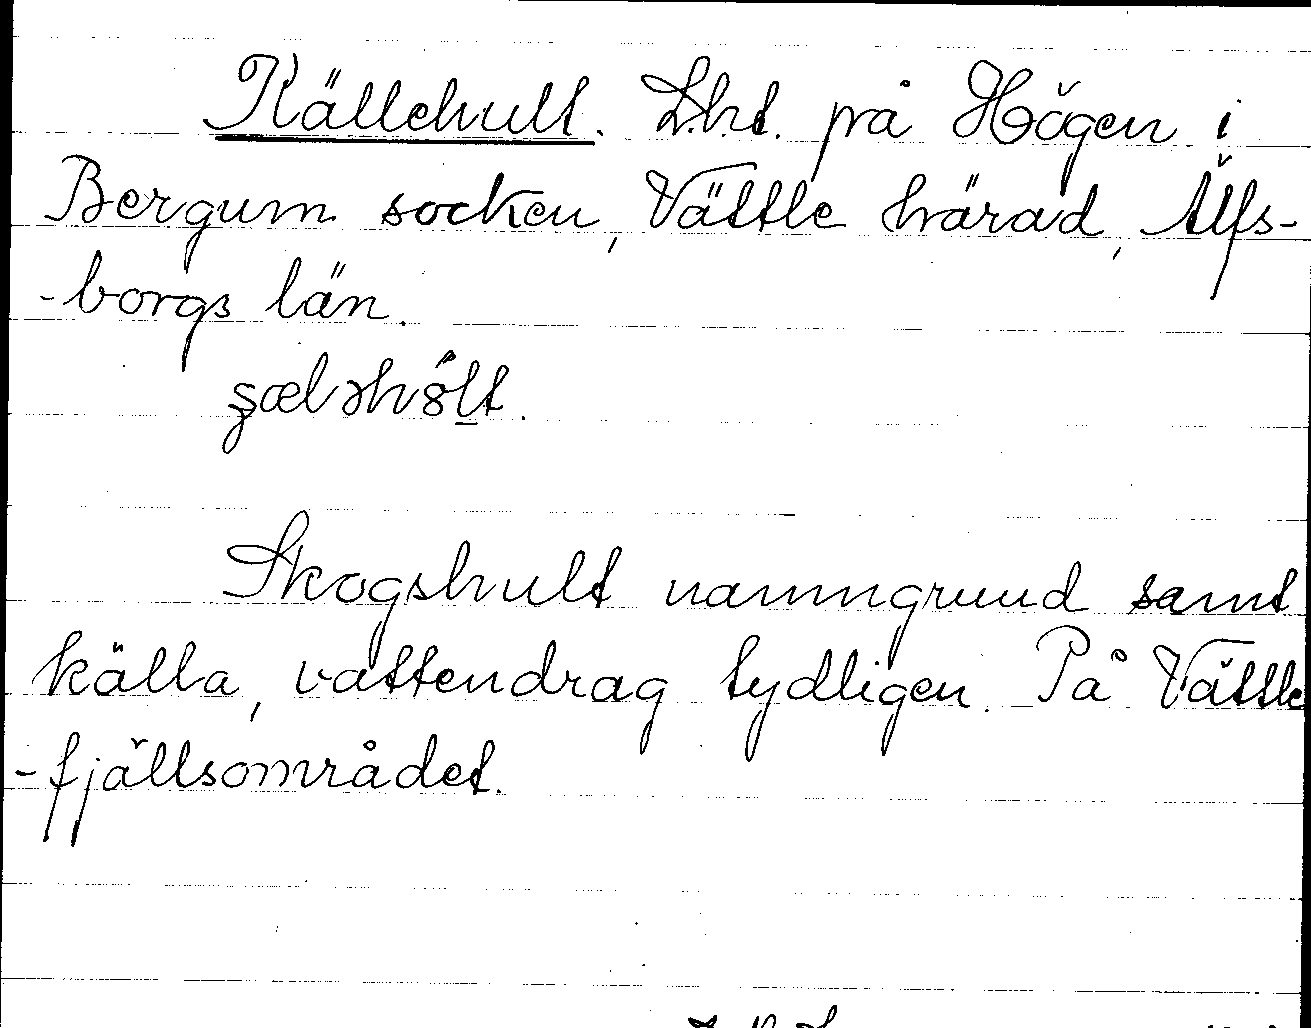 Källehult. Lht. på Högen i
Bergum socken, Vättle härad, Älfs-
-borgs län.
Skogshult namngrund samt
källa, vattendrag tydligen. På Vättle
-fjällsområdet.